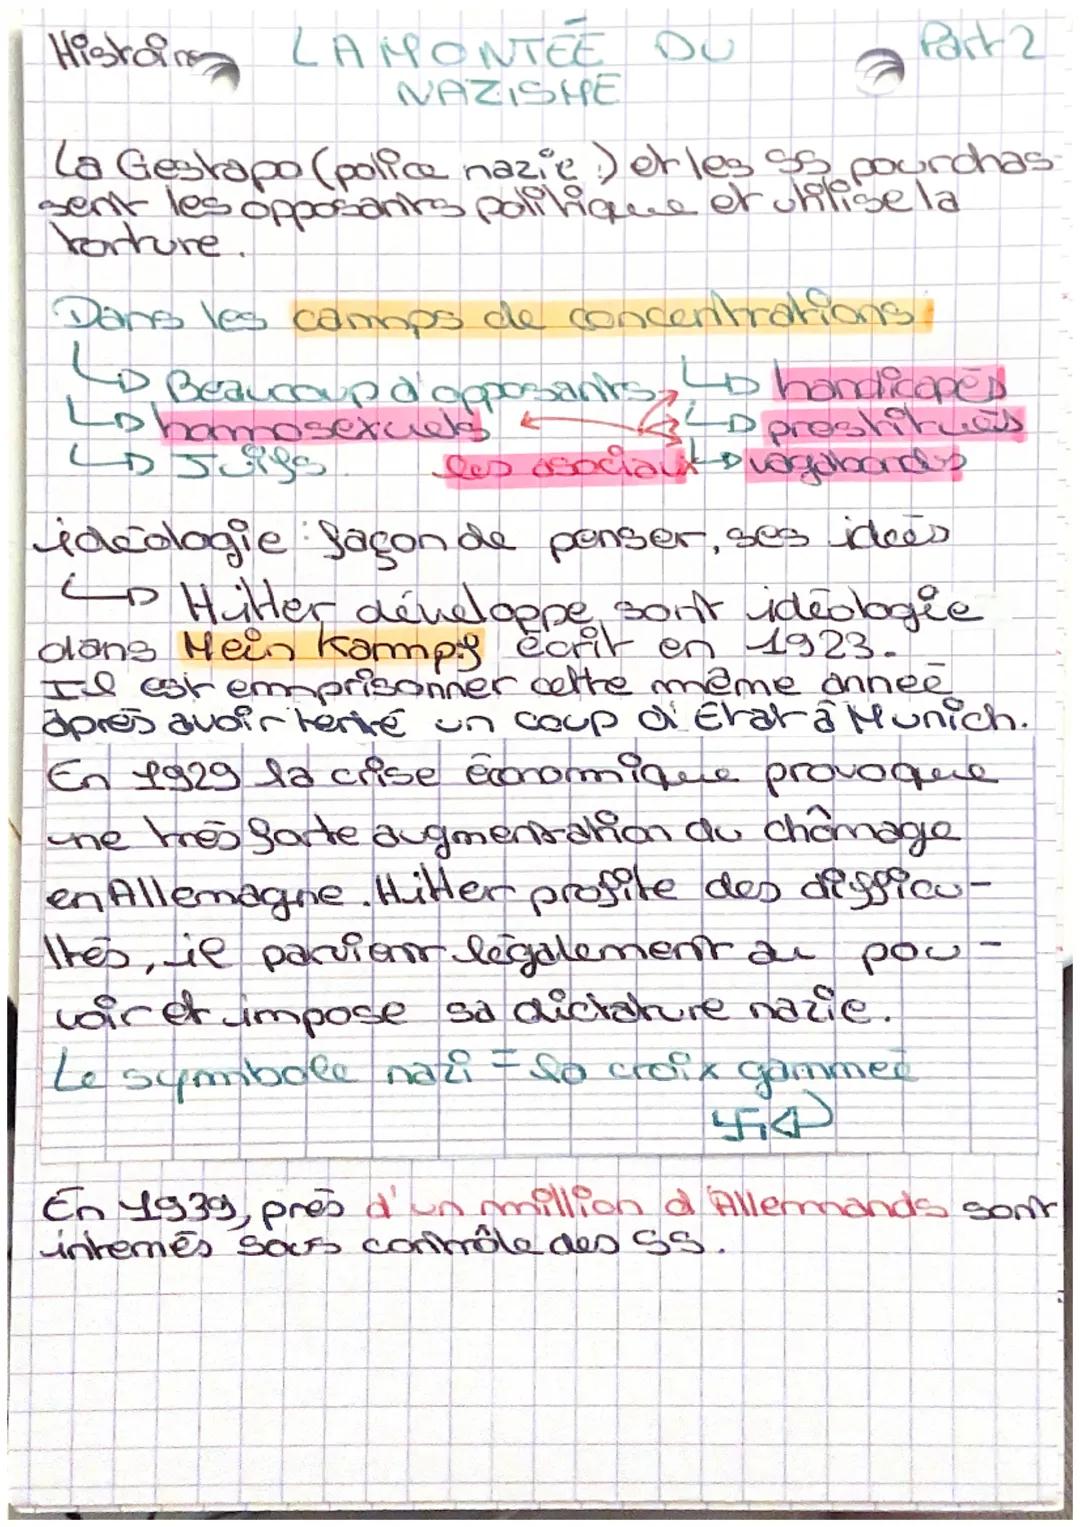 Histoire LA MONTÉE DU Part 2
NAZISME
La Gestapo (police nazie) et les SS pourchas-
sent les opposants politique et utilise la
torture.
Dans les camps de concentrations:
↳ Beaucoup d'opposants ↳ handicapés
↳ homosexuels ↳ prostituées
↳ Juifs les asociaux ↳ vagabonds
idéologie : façon de penser, ses idées
↳ Hitler développe sont idéologie
dans Mein Kampf écrit en 1923.
Il est emprisonner cette même année
après avoir tenté un coup d'État à Munich.
En 1929 la crise économique provoque
une très forte augmentation du chômage
en Allemagne. Hitler profite des difficu-
ltés, il parvient légalement au pou-
voir et impose sa dictature nazie.
Le symbole nazi = la croix gammée
En 1939, près d'un million d'Allemands sont
internés sous contrôle des SS.